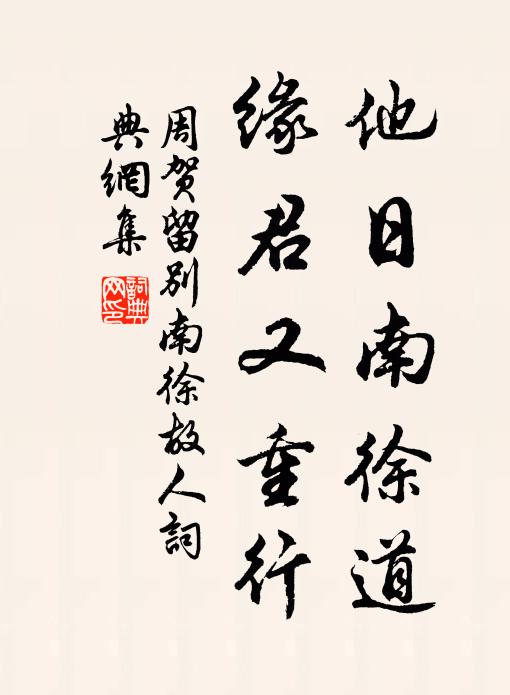 他日南徐道
緣君又重行
周贺留别南徐故人詞
典網集
詞典网印